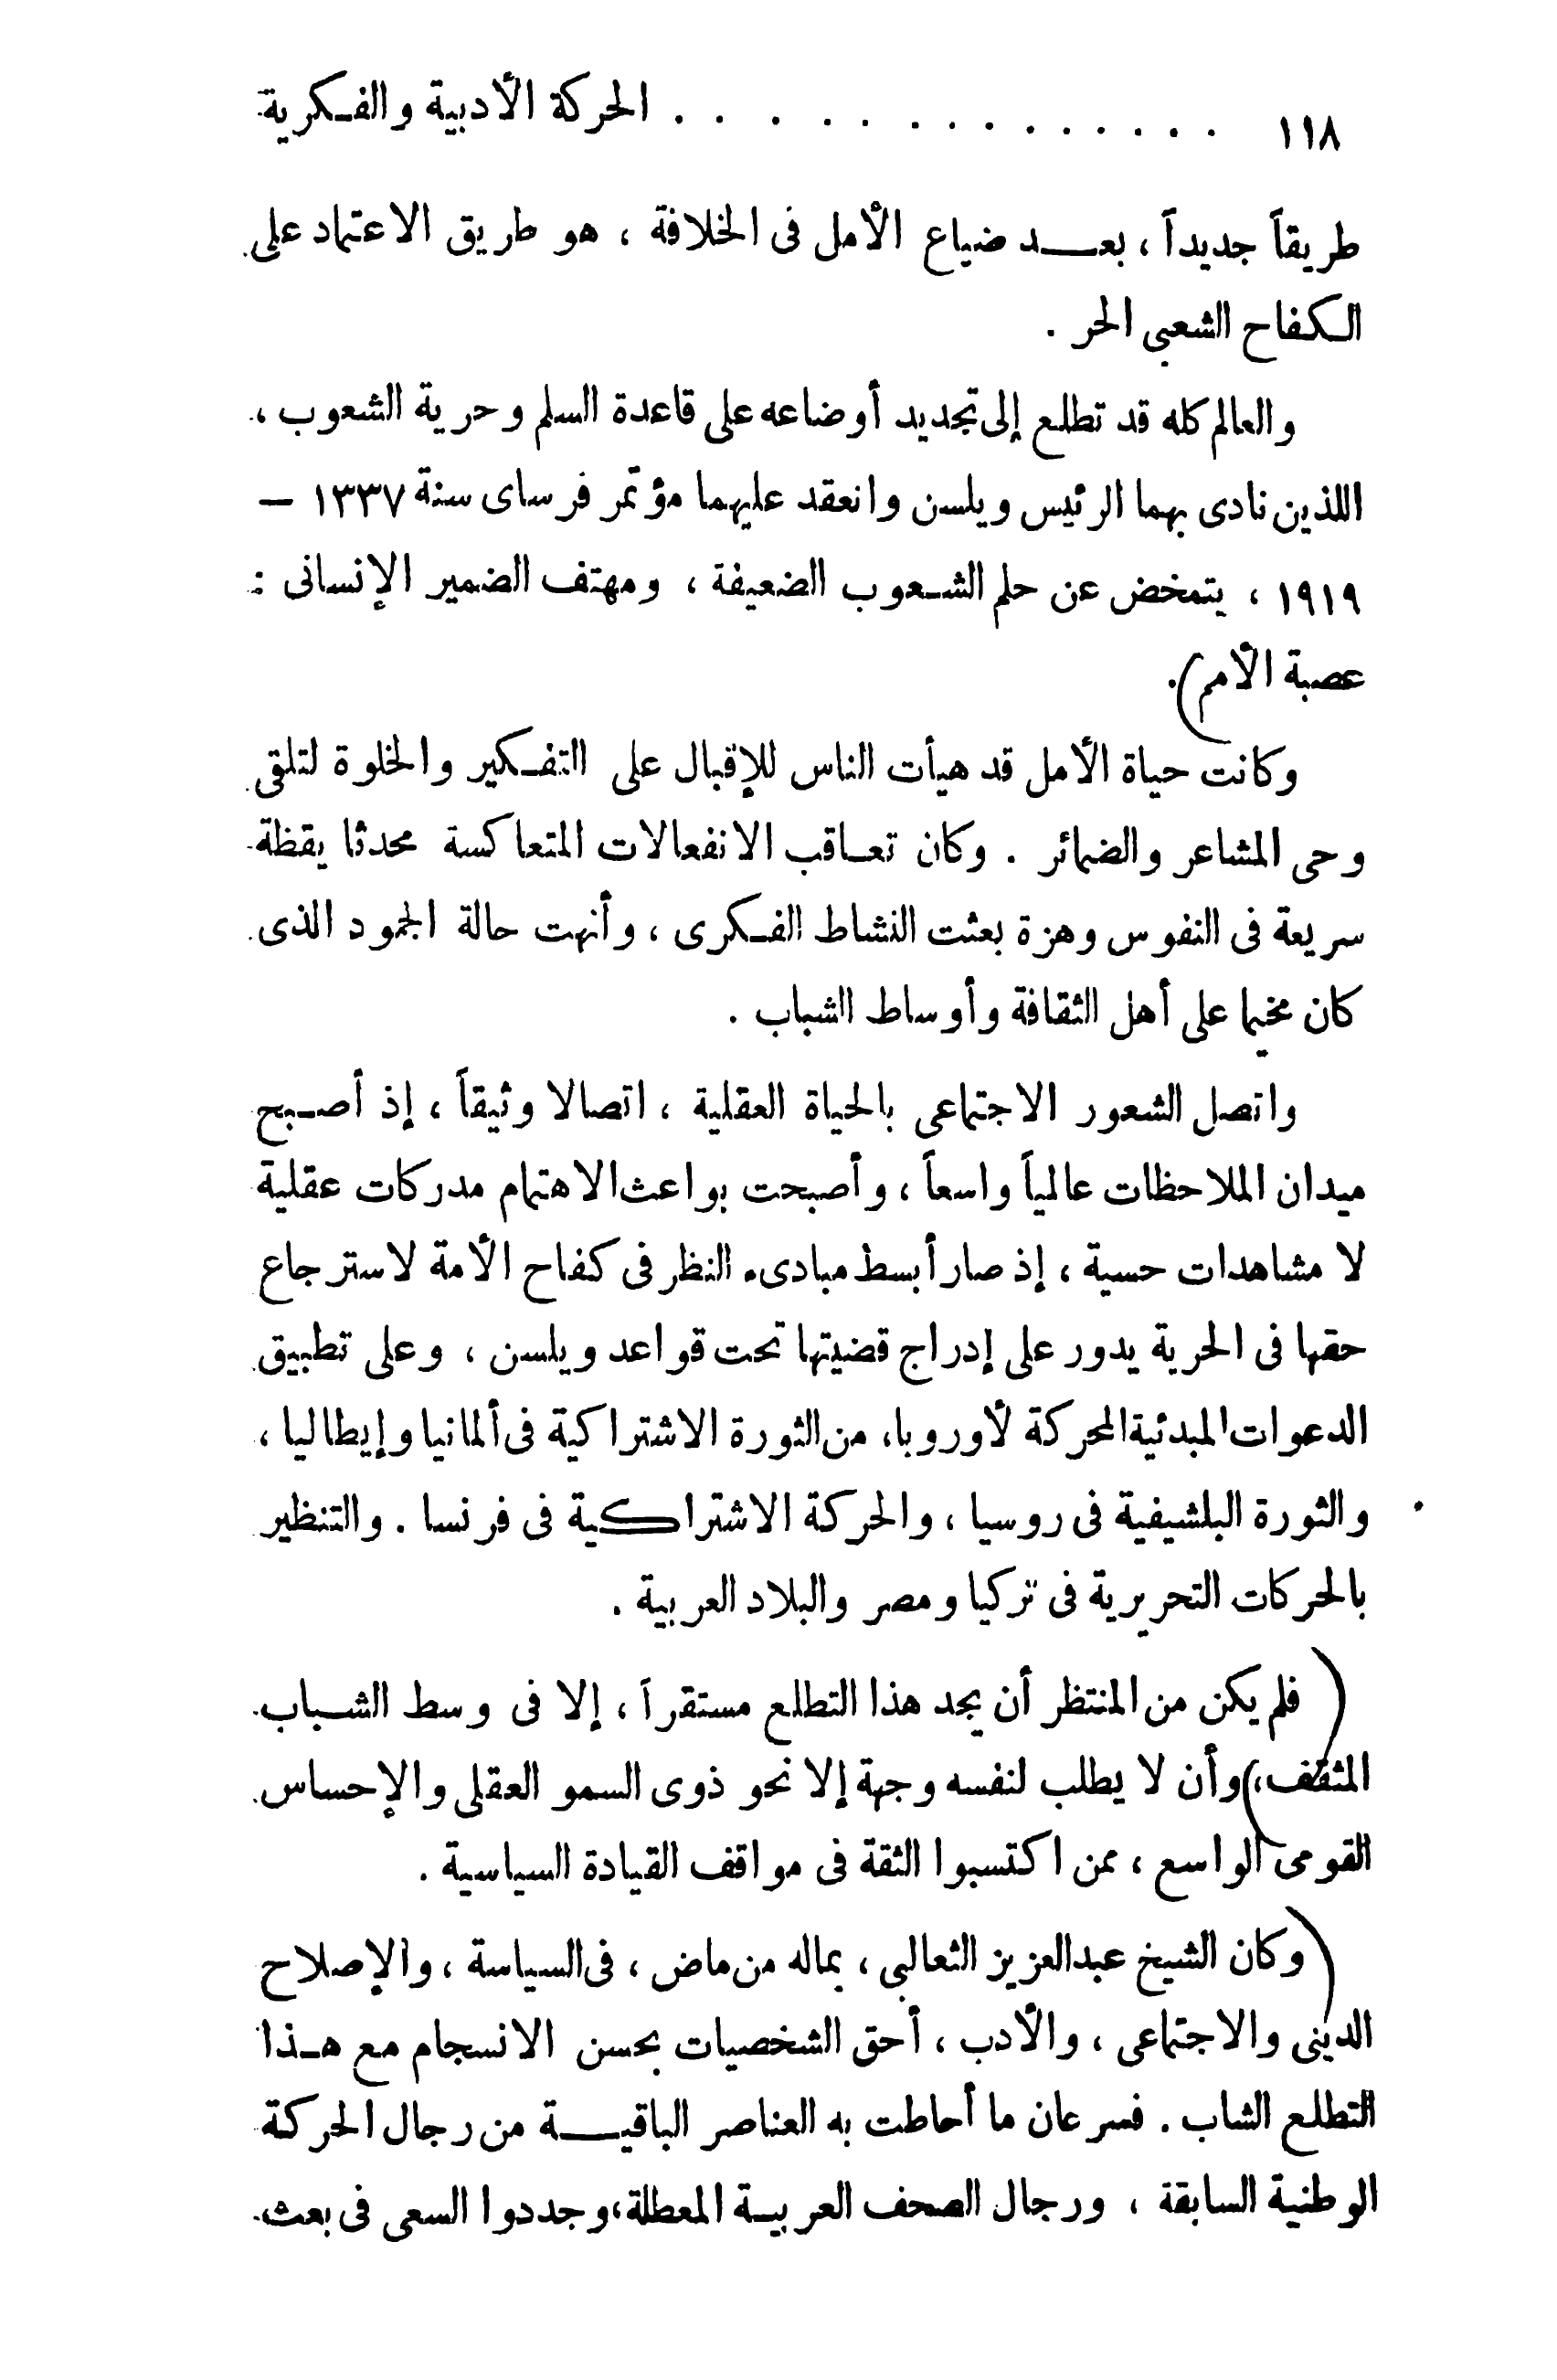 ١١٨ . . . . . . . . . . . . . الحركة الأدبية والفكرية
طريقاً جديداً ، بعد ضياع الأمل فى الخلافة ، هو طريق الاعتماد على
الكفاح الشعبى الحر .
والعالم كله قد تطلع إلى تجديد أوضاعه على قاعدة السلم وحرية الشعوب ،
اللذين نادى بهما الرئيس ويلسن وانعقد عليهما مؤتمر فرساى سنة ١٣٣٧ –
١٩١٩ ، يتمخض عن حلم الشعوب الضعيفة ، ومهتف الضمير الإنسانى :
عصبة الأمم).
وكانت حياة الأمل قد هيأت الناس للإقبال على التفكير والخلوة لتلقى
وحى المشاعر والضمائر . وكان تعاقب الانفعالات المتعاكسة محدثا يقظة
سريعة فى النفوس وهزة بعثت النشاط الفكرى ، وأنهت حالة الجمود الذى
كان مخيما على أهل الثقافة وأوساط الشباب .
واتصل الشعور الاجتماعى بالحياة العقلية ، اتصالا وثيقاً ، إذ أصبح
ميدان الملاحظات عالمياً واسعاً ، وأصبحت بواعث الاهتمام مدركات عقلية
لا مشاهدات حسية ، إذ صار أبسط مبادىء النظر فى كفاح الأمة لاسترجاع
حقها فى الحرية يدور على إدراج قضيتها تحت قواعد ويلسن ، وعلى تطبيق
الدعوات المبدئية المحركة لأوروبا، من الثورة الاشتراكية فى ألمانيا وإيطاليا ،
والثورة البلشيفية فى روسيا ، والحركة الاشتراكية فى فرنسا . والتنظير
بالحركات التحريرية فى تركيا ومصر والبلاد العربية .
(فلم يكن من المنتظر أن يجد هذا التطلع مستقراً ، إلا فى وسط الشباب
المثقف،) وأن لا يطلب لنفسه وجهة إلا نحو ذوى السمو العقلى والإحساس
القومى الواسع ، ممن اكتسبوا الثقة فى مواقف القيادة السياسية .
(وكان الشيخ عبدالعزيز الثعالبى ، بماله من ماض ، فى السياسة ، والإصلاح
الدينى والاجتماعى ، والأدب ، أحق الشخصيات بحسن الانسجام مع هذا
التطلع الشاب . فسرعان ما أحاطت به العناصر الباقية من رجال الحركة
الوطنية السابقة ، ورجال الصحف العربية المعطلة، وجددوا السعى فى بعث